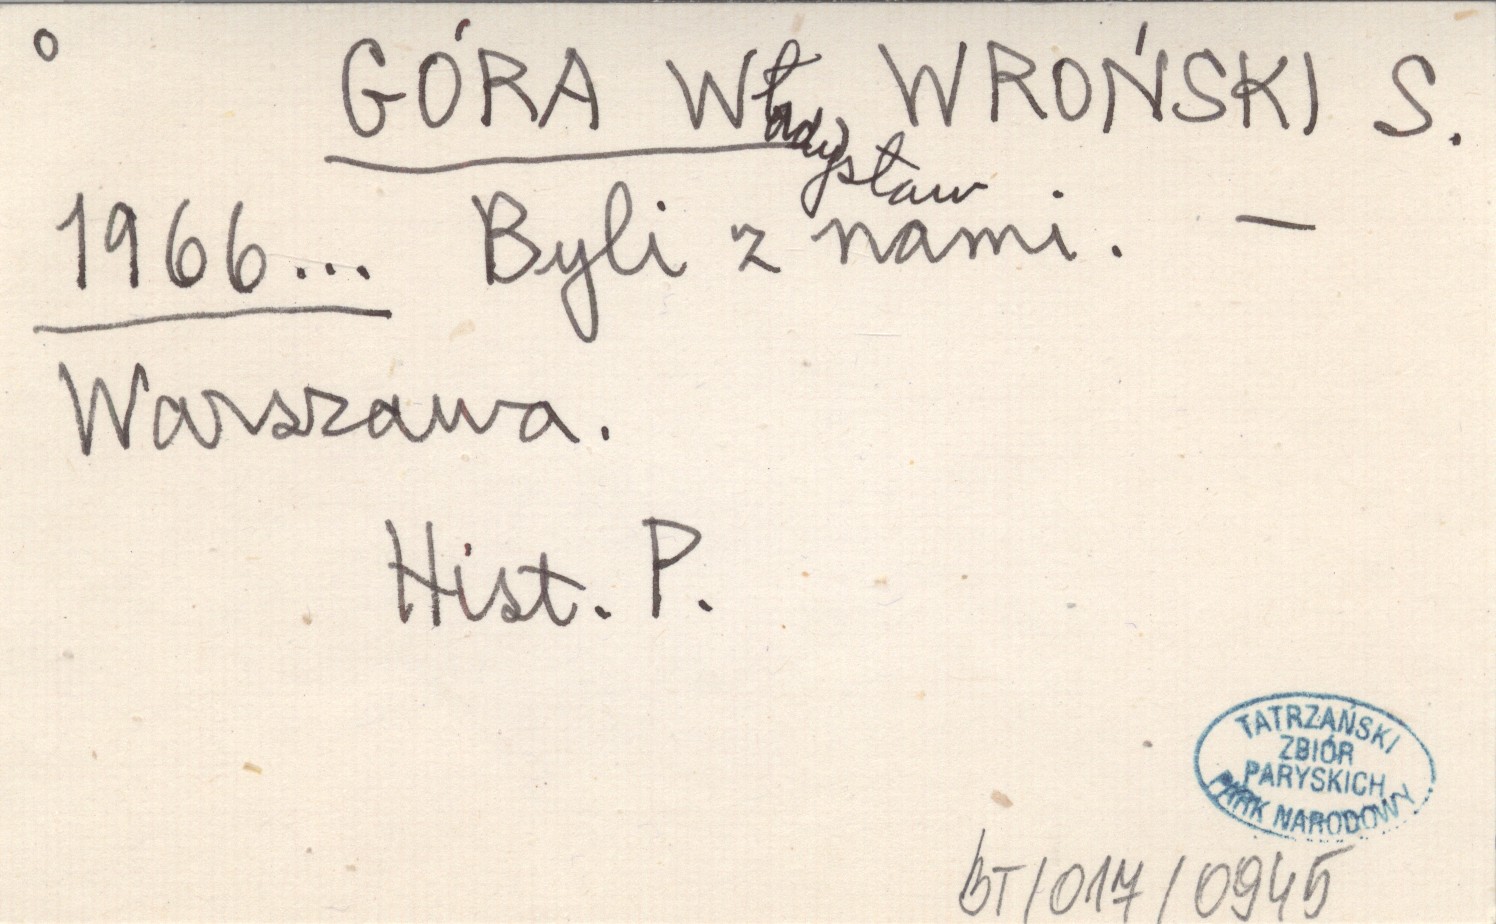 o GÓRA Władysław WROŃSKI S.
1966... Byli z nami. —
Warszawa.
Hist. P.
TATRZAŃSKI
ZBIÓR
PARYSKICH
PARK NARODOWY
BT/017/0945